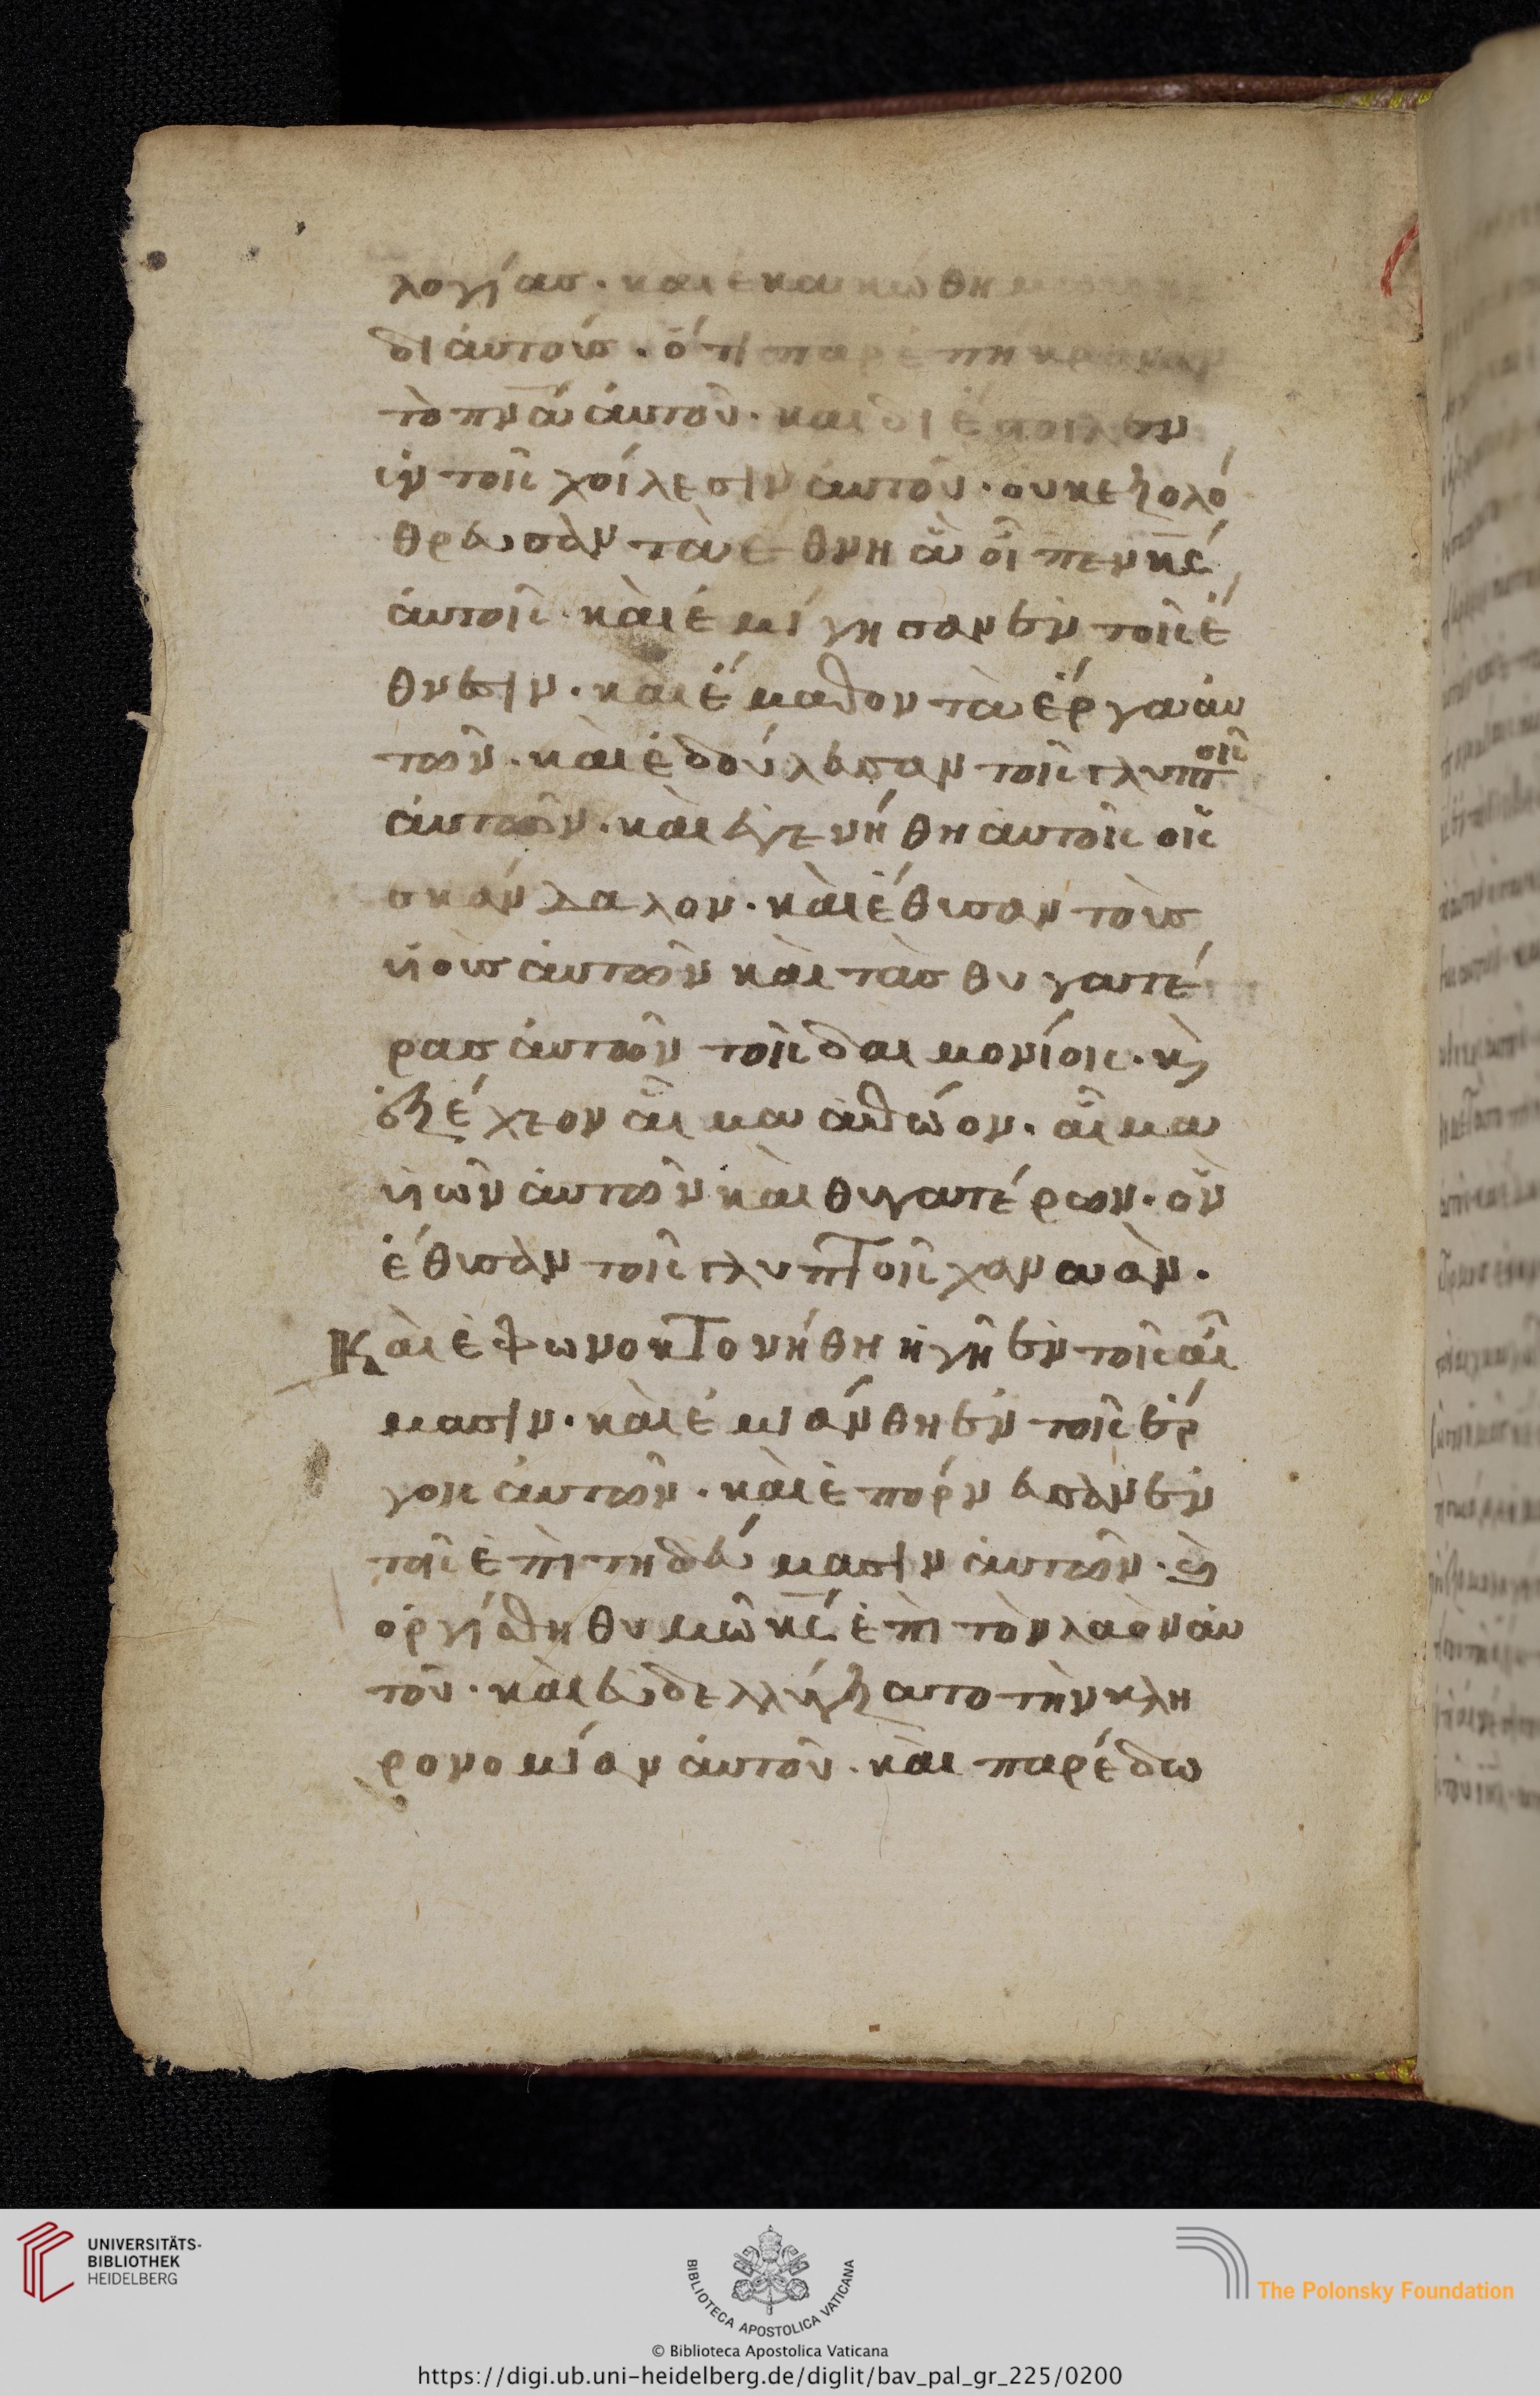 λογίας · και εκακώθη μωϋσης
δι αυτούς · ότι παρεπήκραναν
τὸ πν̅α αυτοῦ · και διέστειλεν
ἐν τοῖς χοίλεσιν αυτοῦ · ουκ εξολό
θρευσὰν τὰ έθνη ἃ εἶπεν κ̅ς
αυτοῖς · καὶ εμίγησαν ἐν τοῖς έ
θνεσιν · καὶ έμαθον τὰ έργα αυ
τῶν · καὶ εδούλευσαν τοῖς γλυπτοῖς
αυτῶν · καὶ εγενήθη αυτοῖς εἰς
σκάνδαλον · καὶ έθυσαν τοὺς
υἱοὺς αυτῶν καὶ τὰς θυγατέ
ρας αυτῶν τοῖς δαιμονίοις · κ̀
εξέχεον αἷμα αθώον · αἷμα
υἱῶν αυτῶν καὶ θυγατέρων · ὧν
έθυσὰν τοῖς γλυπτοῖς χαναὰν ·
Καὶ εφωνοκτονήθη ἡ γῆ ἐν τοῖς αἵ
μασιν · καὶ εμιάνθη ἐν τοῖς έρ
γοις αυτῶν · καὶ επόρνευσὰν ἐν
τοῖς επιτηδεύμασιν αυτῶν · κ̀
οργίσθη θυμῶ κ̅ς ἐπὶ τὸν λαὸν αυ
τοῦ · καὶ εβδελλύξατο τὴν κλη
ρονομίαν αυτοῦ · καὶ παρέδω
UNIVERSITÄTS-
BIBLIOTHEK
HEIDELBERG
BIBLIOTECA APOSTOLICA VATICANA
The Polonsky Foundation
© Biblioteca Apostolica Vaticana
https://digi.ub.uni-heidelberg.de/diglit/bav_pal_gr_225/0200